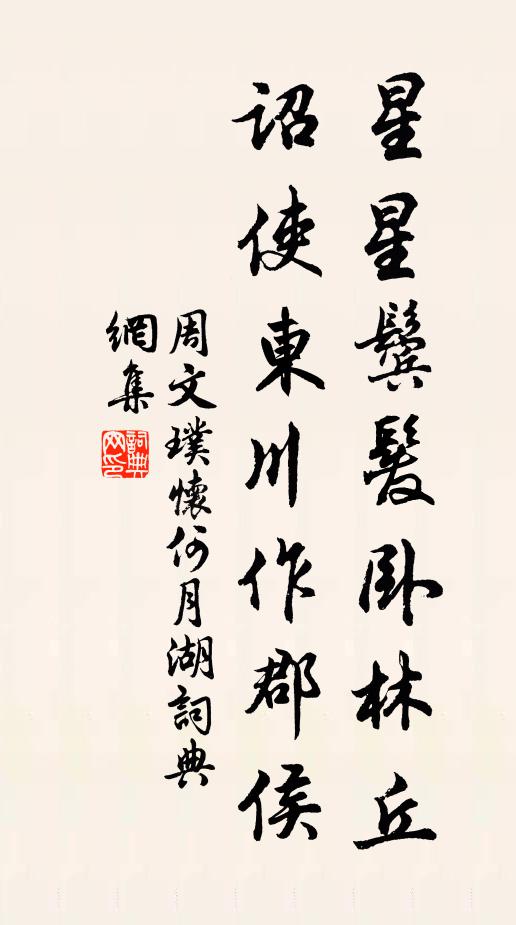 星星鬓髮卧林丘
詔使東川作郡侯
周文璞懷何月湖詞典
網集
詞典網印